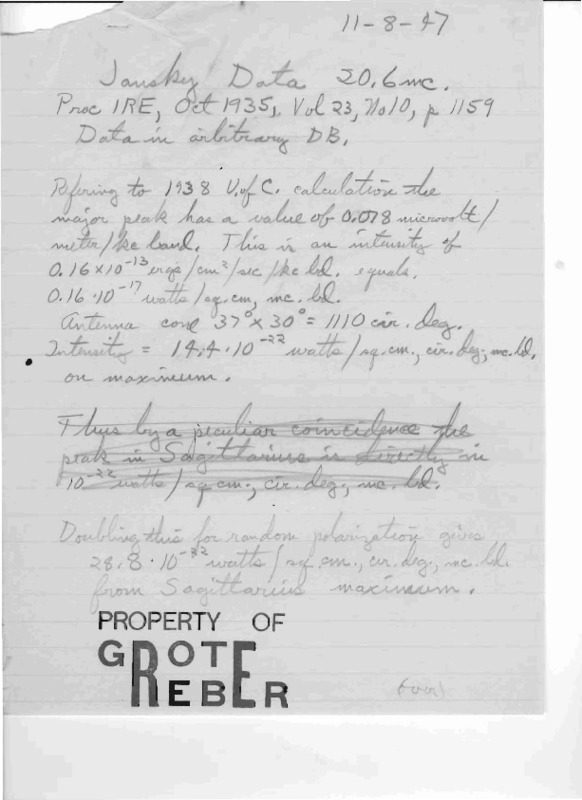 11-8-47
Jansky Data 20.6 mc.
Proc IRE, Oct 1935, Vol 23, No 10, p 1159
Data in arbitrary DB.
Refering to 1938 U. of C. calculation the
major peak has a value of 0.078 microvolt/
meter/kc band. This is an intensity of
0.16 x 10⁻¹³ ergs/cm²/sec/kc bd. equals.
0.16·10⁻¹⁷ watts/sq.cm, mc. bd.
Antenna cone 37° x 30° = 1110 cir. deg.
Intensity = 14.4·10⁻²² watts/sq.cm., cir. deg., mc. bd.
on maximum.
Thus by a peculiar coincidence the
peak in Sagittarius is directly in
10⁻²² watts/sq cm., cir. deg., mc. bd.
Doubling this for random polarization gives
28.8·10⁻²² watts/sq.cm., cir. deg., mc. bd.
from Sagittarius maximum.
PROPERTY OF
GROTE
REBER
(over)